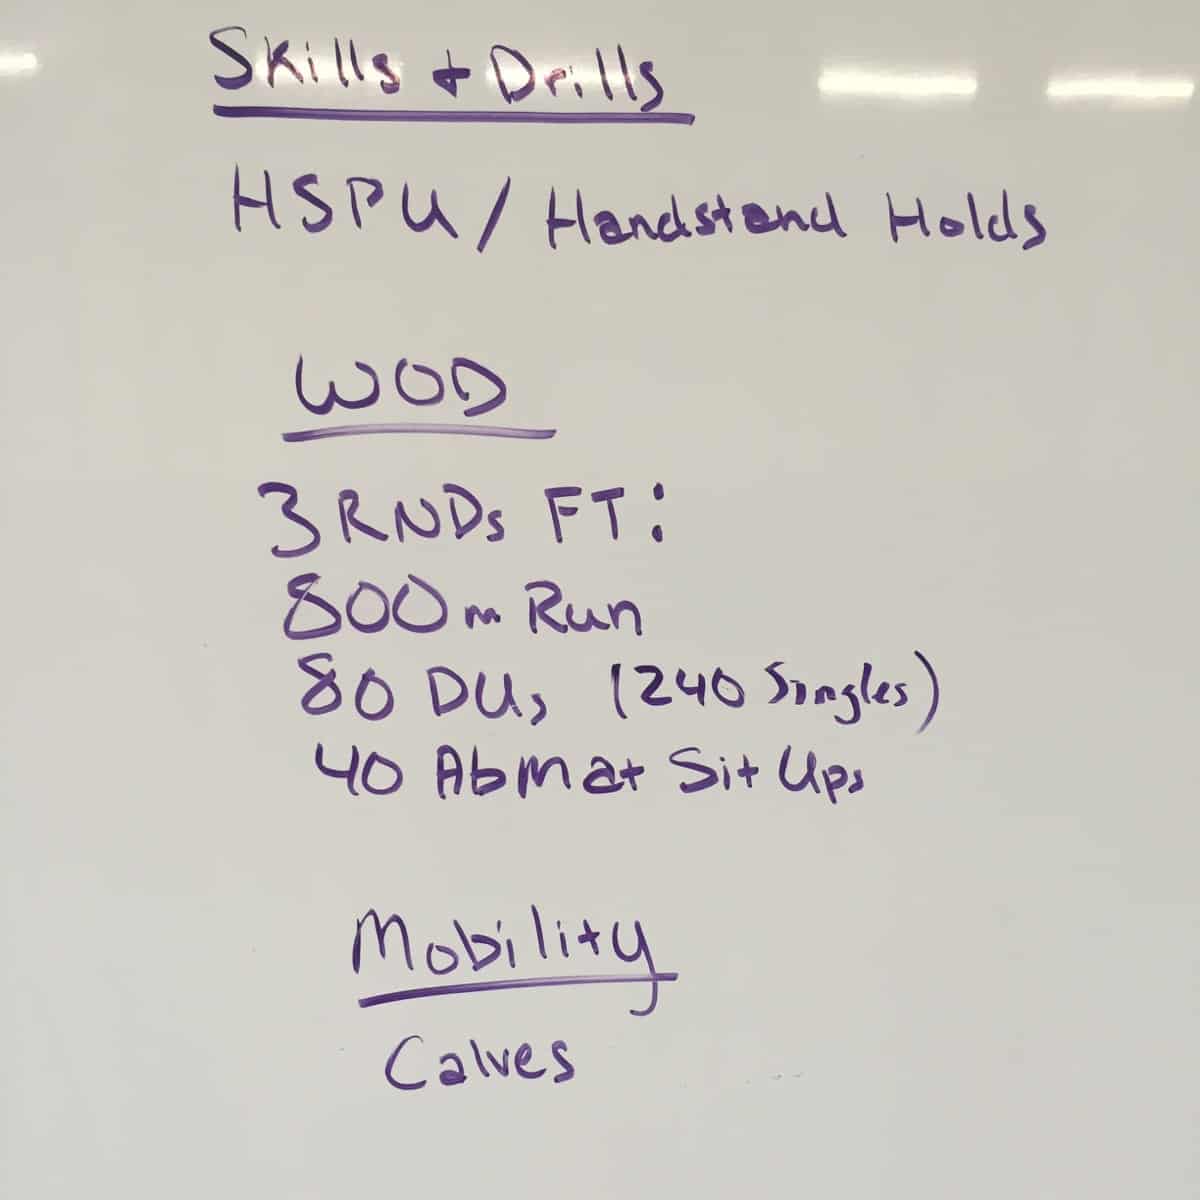 Skills + Drills
HSPU / Handstand Holds
WOD
3 RNDs FT:
800m Run
80 DUs (240 Singles)
40 Abmat Sit Ups
Mobility
Calves